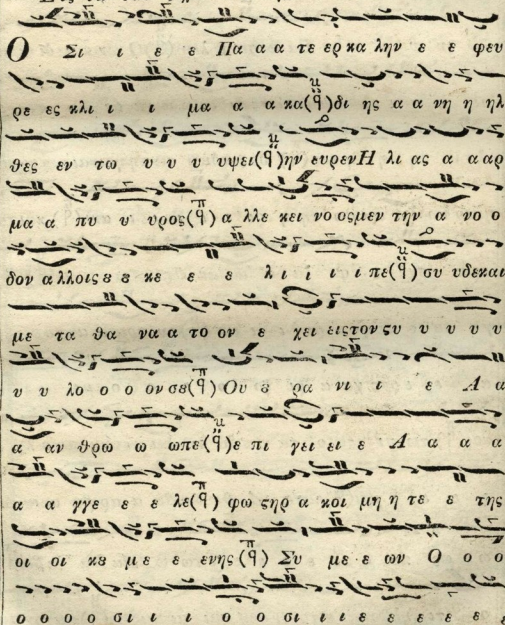 Ὁ Σι ι ε ε Πα α α τε ερ κα λην ε ε φευ
ρε ες κλι ι ι μα α α κα(ϙ̈)δι ης α α νη η ηλ
θες εν τω υ υ υ υψει(ϙ̈)ην ευρεν Η λι ας α α αρ
μα α πυ υ υρος(ϙ̈)α λλε κει νο οσμεν την α νο ο
δον α λλοις ȣ ȣ κε ε ε λι ι ι ι πε(ϙ̈)συ υδεκαι
με τα θα να α το ον ε χει ειςτον ςυ υ υ υ υ
υ υ λο ο ο ον σε(ϙ̈) Ου ȣ ρα νι ι ε Α α
α αν θρω ω ωπε(ϙ̈)ε πι γει ει ε Α α α α
α α γγε ε ε λε(ϙ̈) φω ςηρ α κοι μη η τε ε της
οι οι κȣ με ε ε ενης(ϙ̈) Συ με ε ων Ὁ ο ο
ο ο ο ο σι ι ι ο ο σι ι ε ε ε ε ε ε